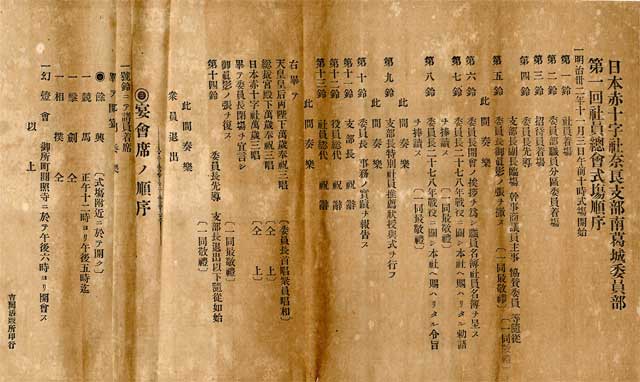 日本赤十字社奈良支部南葛城委員部
第一回社員總會式場順序
一明治卅二年十一月三日午前十時式場開始
第一鈴 社員着席
第二鈴 支部職員分區委員着席
第三鈴 招待員着席
第四鈴 委員長先導
支部長副長臨場 幹事商議員主事 協賛委員 等隨從
〔一同敬禮〕
第五鈴 委員長御眞影ノ張ヲ
〔一同最敬禮〕
此間奏樂
第六鈴 委員長開會ノ挨拶ヲ爲シ職員名簿社員名簿ヲ呈ス
第七鈴 委員長二十七八年戰役ニ關シ本社ヘ賜ハリタル勅語
ヲ捧讀ス 〔一同最敬禮〕
第八鈴 委員長二十七八年戰役ニ關シ本社ヘ賜ハリタル令旨
ヲ捧讀ス
此間奏樂
第九鈴 支部長特別社員推薦狀授與式ヲ行フ
此間奏樂
第十鈴 委員長事務ノ實蹟ヲ報告ス
第十一鈴 支部長 祝辭
第十二鈴 役員總代 祝辭
第十三鈴 社員總代 祝辭
此間奏樂
右畢テ
天皇皇后両陛下萬歳奉祝三唱 〔委員長首唱衆員唱和〕
總裁宮殿下萬歳奉祝三唱 〔仝上〕
日本赤十字社萬歳三唱 〔仝上〕
畢テ委員長閉場ヲ宣言シ
御眞影ノ張ヲ復ス 〔一同最敬禮〕
第十四鈴 委員長先導 支部長退出以下隨從如始
〔一同敬禮〕
此間奏樂
衆員退出
宴會席ノ順序
一號鈴ニテ諸員着席
畢テ 奏樂
餘興 〔式場附近ニ於テ開ク〕
一競馬 正午十二時ヨリ午後五時迄
一擊劍 仝
一相撲 仝
一幻燈會 御所町圓照寺ニ於テ午後六時ヨリ開會ス
以上
吉岡活版所印行